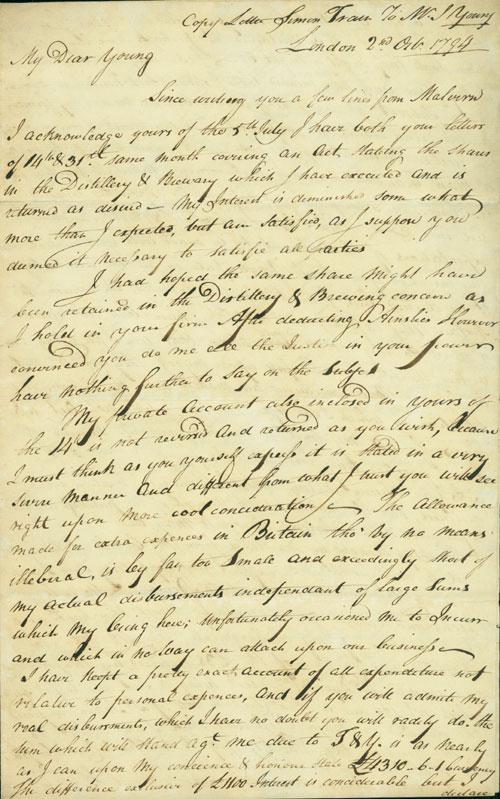 Copy Letter Simon Fraser To Mr J Young
London 2nd Octr. 1794
My Dear Young
Since writing you a few lines from Malvern
I acknowledge yours of the 5th July I have both your letters
of 14th & 31st same month covering an Act stating the shares
in the Distillery & Brewary which I have executed and is
returned as desired — My Interest is diminished some what
more than I expected, but am satisfied, as I suppose you
deemed it necessary to satisfie all Parties
I had hoped the same share Might have
been retained in the Distillery & Brewing concern as
I hold in your firm After deducting Ainslies However
convinced you do me all the Justice in your power
have nothing further to say on the Subject
My private Account also inclosed in yours of
the 14 is not revised And returned as you wish, because
I must think as you yourself express it is stated in a very
severe manner And different from what I trust you will see
right upon More cool concideration — The Allowance
made for extra expences in Britain tho' by no means
illeberal, is by far too Small and exceedingly short of
my actual disbursements independant of large Sums
which My being here; Unfortunately occasioned me to Incurr
and which in no Way can attach upon our business
I have kept a pretty exact account of all expenditure not
relative to personal expences, And if you will admitt my
real disbursments, which I have no doubt you will readily do. the
sum which will stand agt. me due to F & Y. is as nearly
as I can upon My concience & honour State £4310-6-1 Currency
The difference exclusive of £1100 Interest is conciderable but I
declare